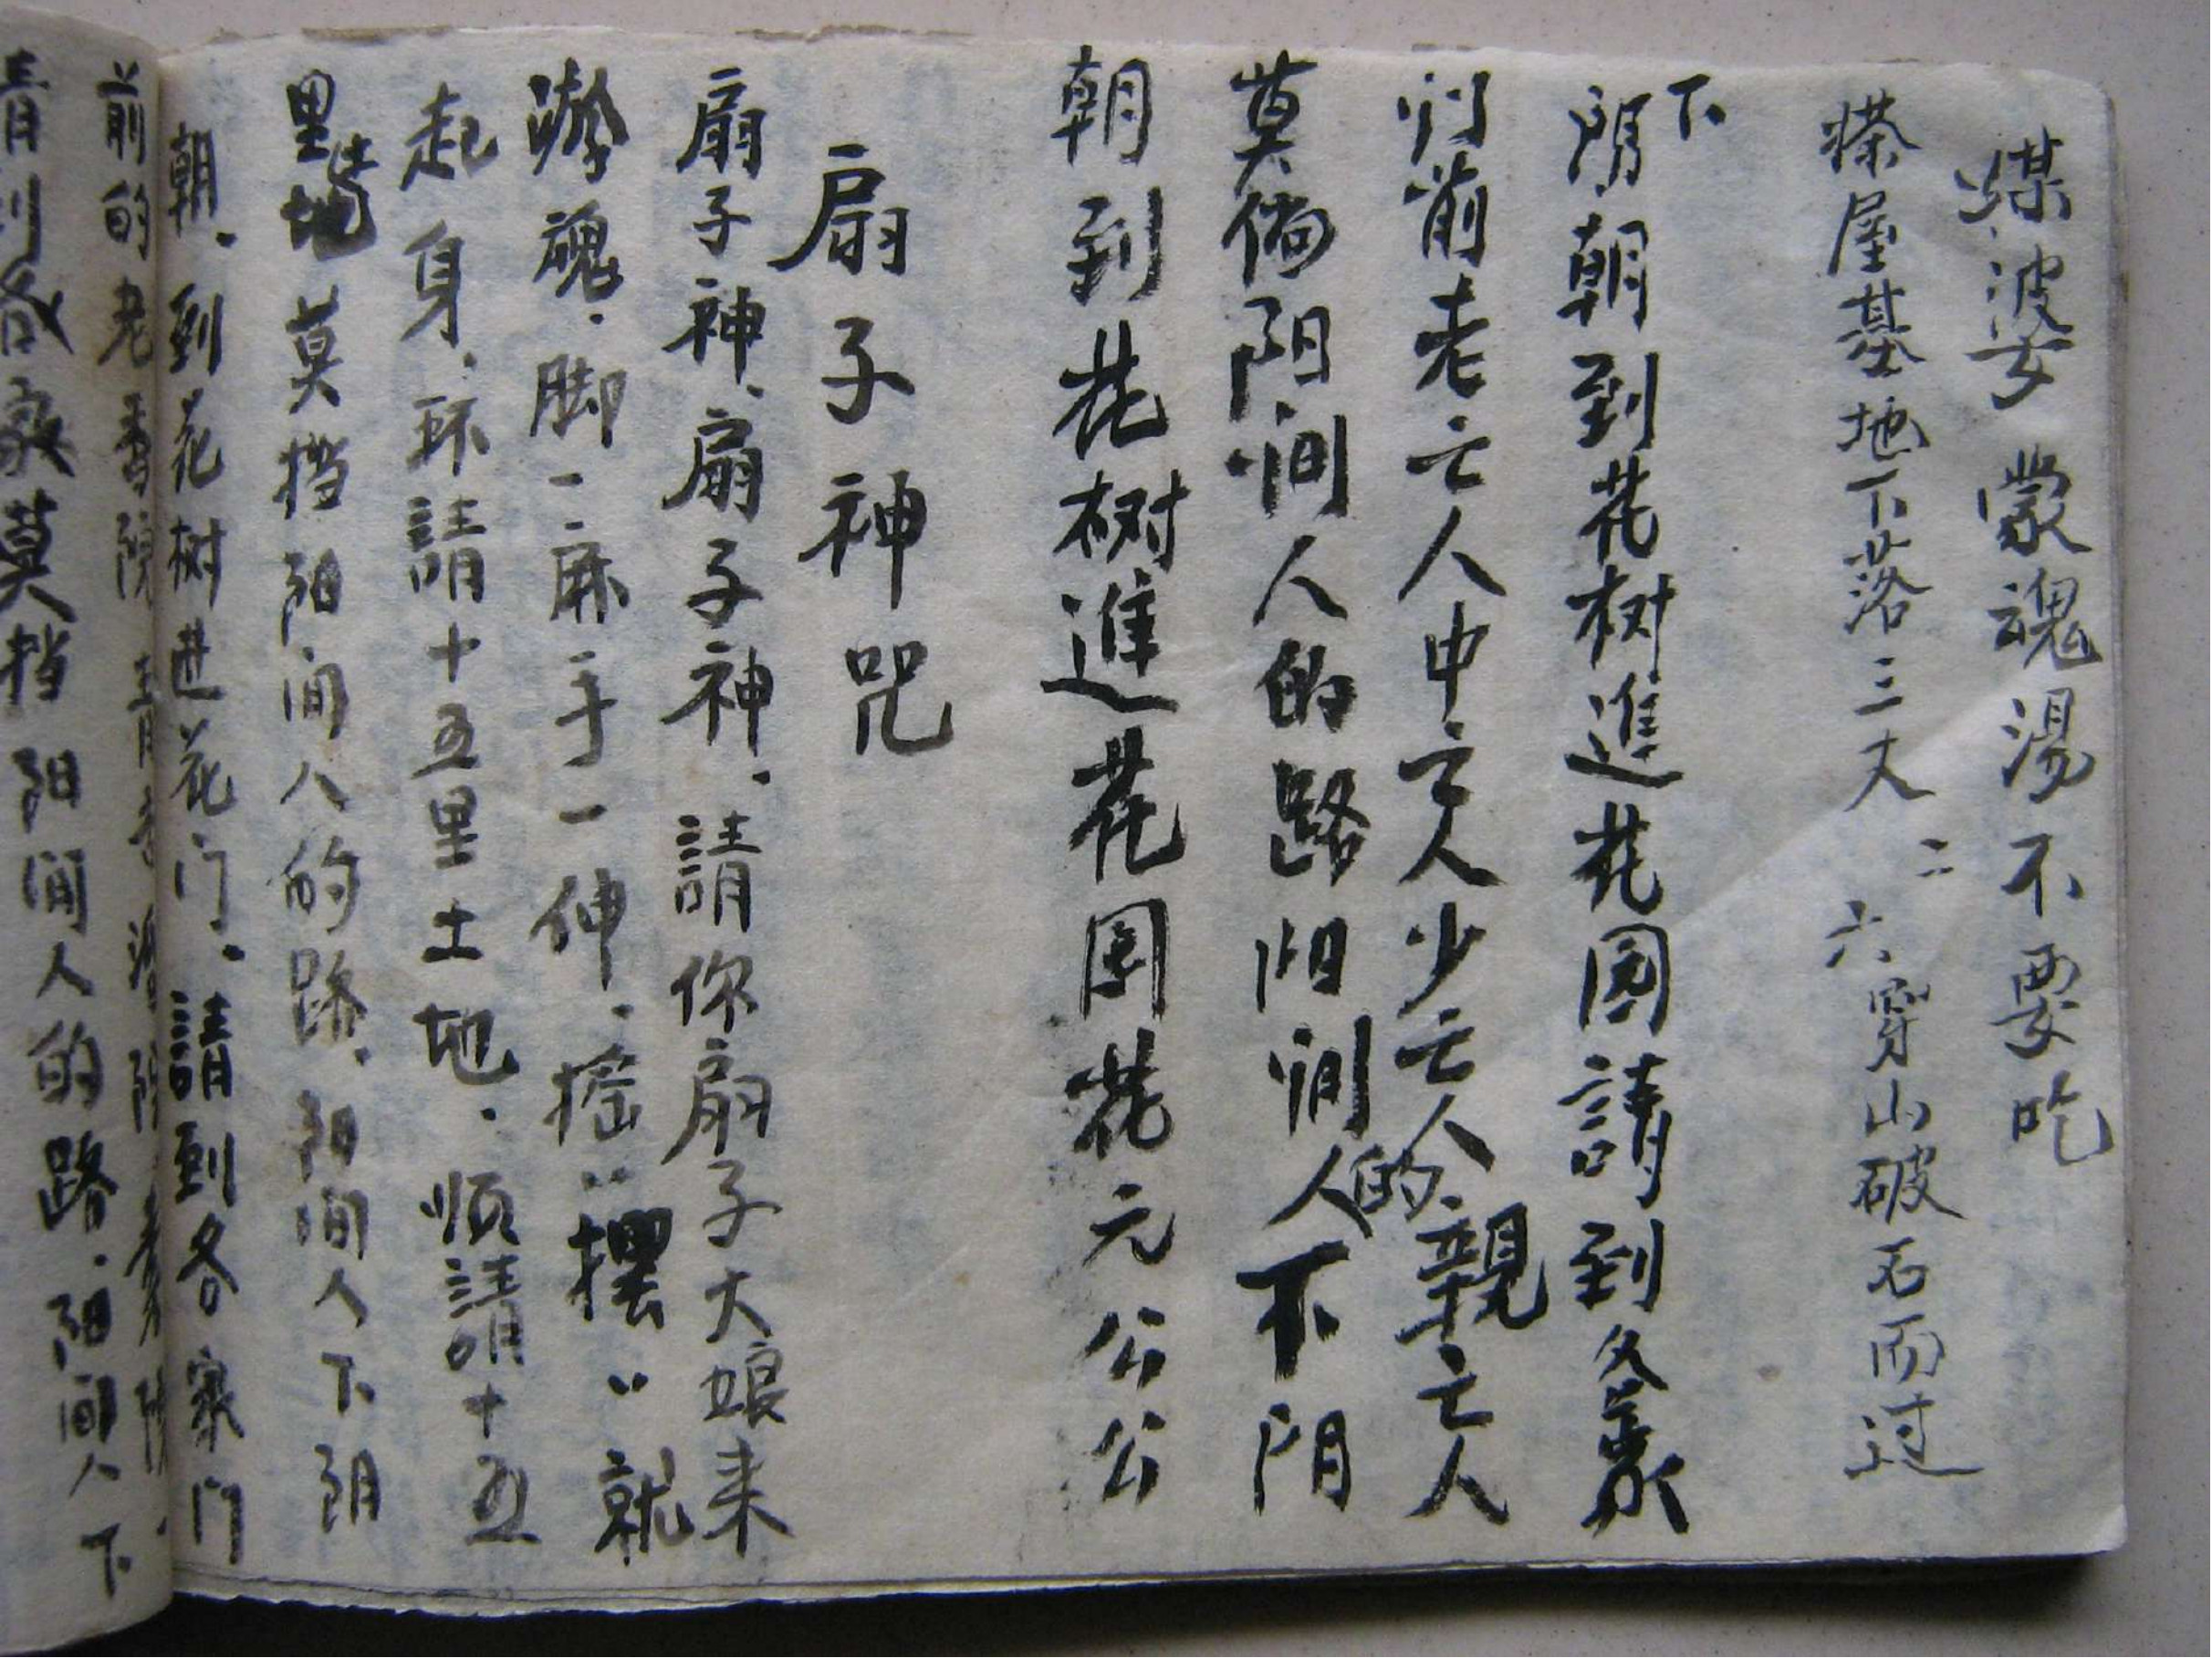 媒婆蒙魂湯不要吃
搽屋基地下落三丈二六穿山破石而过
下
阴朝到花树進花园請到各家
们前老亡人中亡人少亡人的親亡人
莫倘阳间人的路阳间人下阴
朝到花树進花园花元公公
扇子神咒
扇子神、扇子神、請你扇子大娘来
魂、脚一麻手一伸、摇〃摆〃就
起身、环請十五里土地、顺請十五
里土地莫挡阳间人的路、阳间人下阴
朝、到花树进花门、請到各家门
前的老
請到各家莫挡阳间人的路、阳间人下